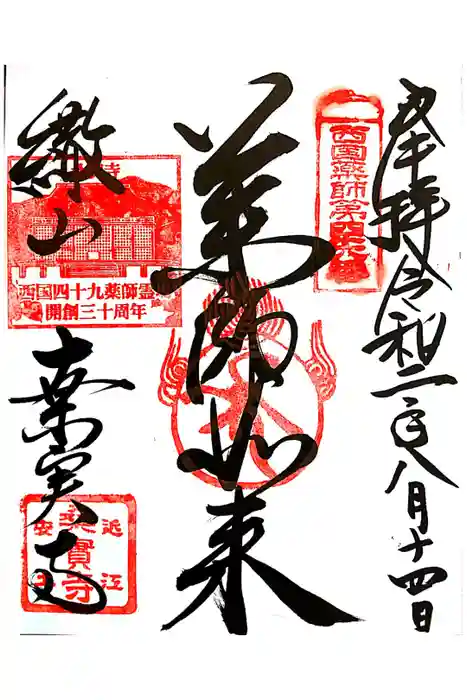 奉拝 令和二年八月十四日
西国薬師第四十六番
薬師如来
繖山
西国四十九薬師霊
開創三十周年
桑実寺
近江
桑實寺
安土